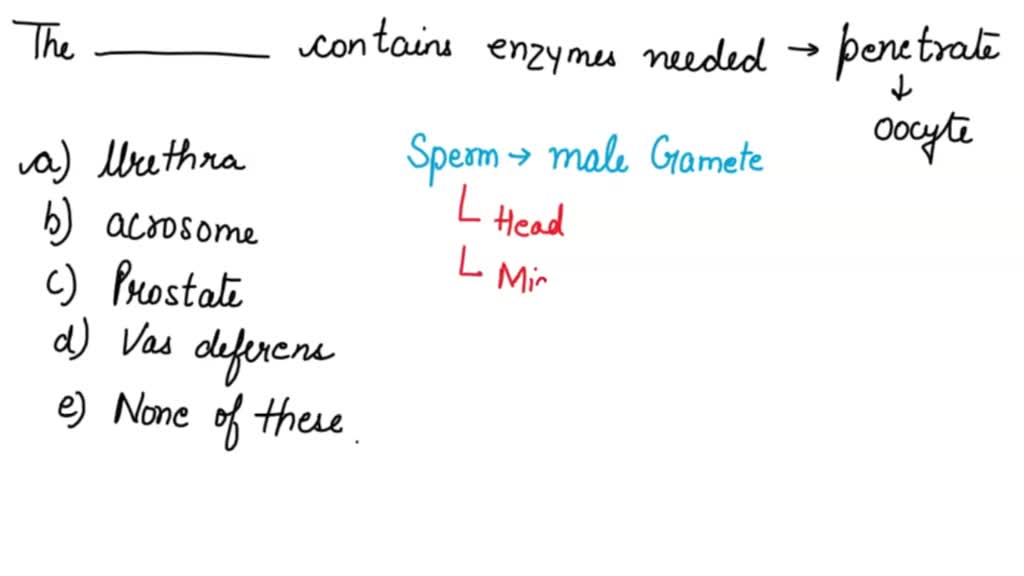 The ________ contains enzymes needed → penetrate
↓
oocyte
a) Urethra
b) acrosome
c) Prostate
d) Vas deferens
e) None of these.
Sperm → male Gamete
Head
Mi